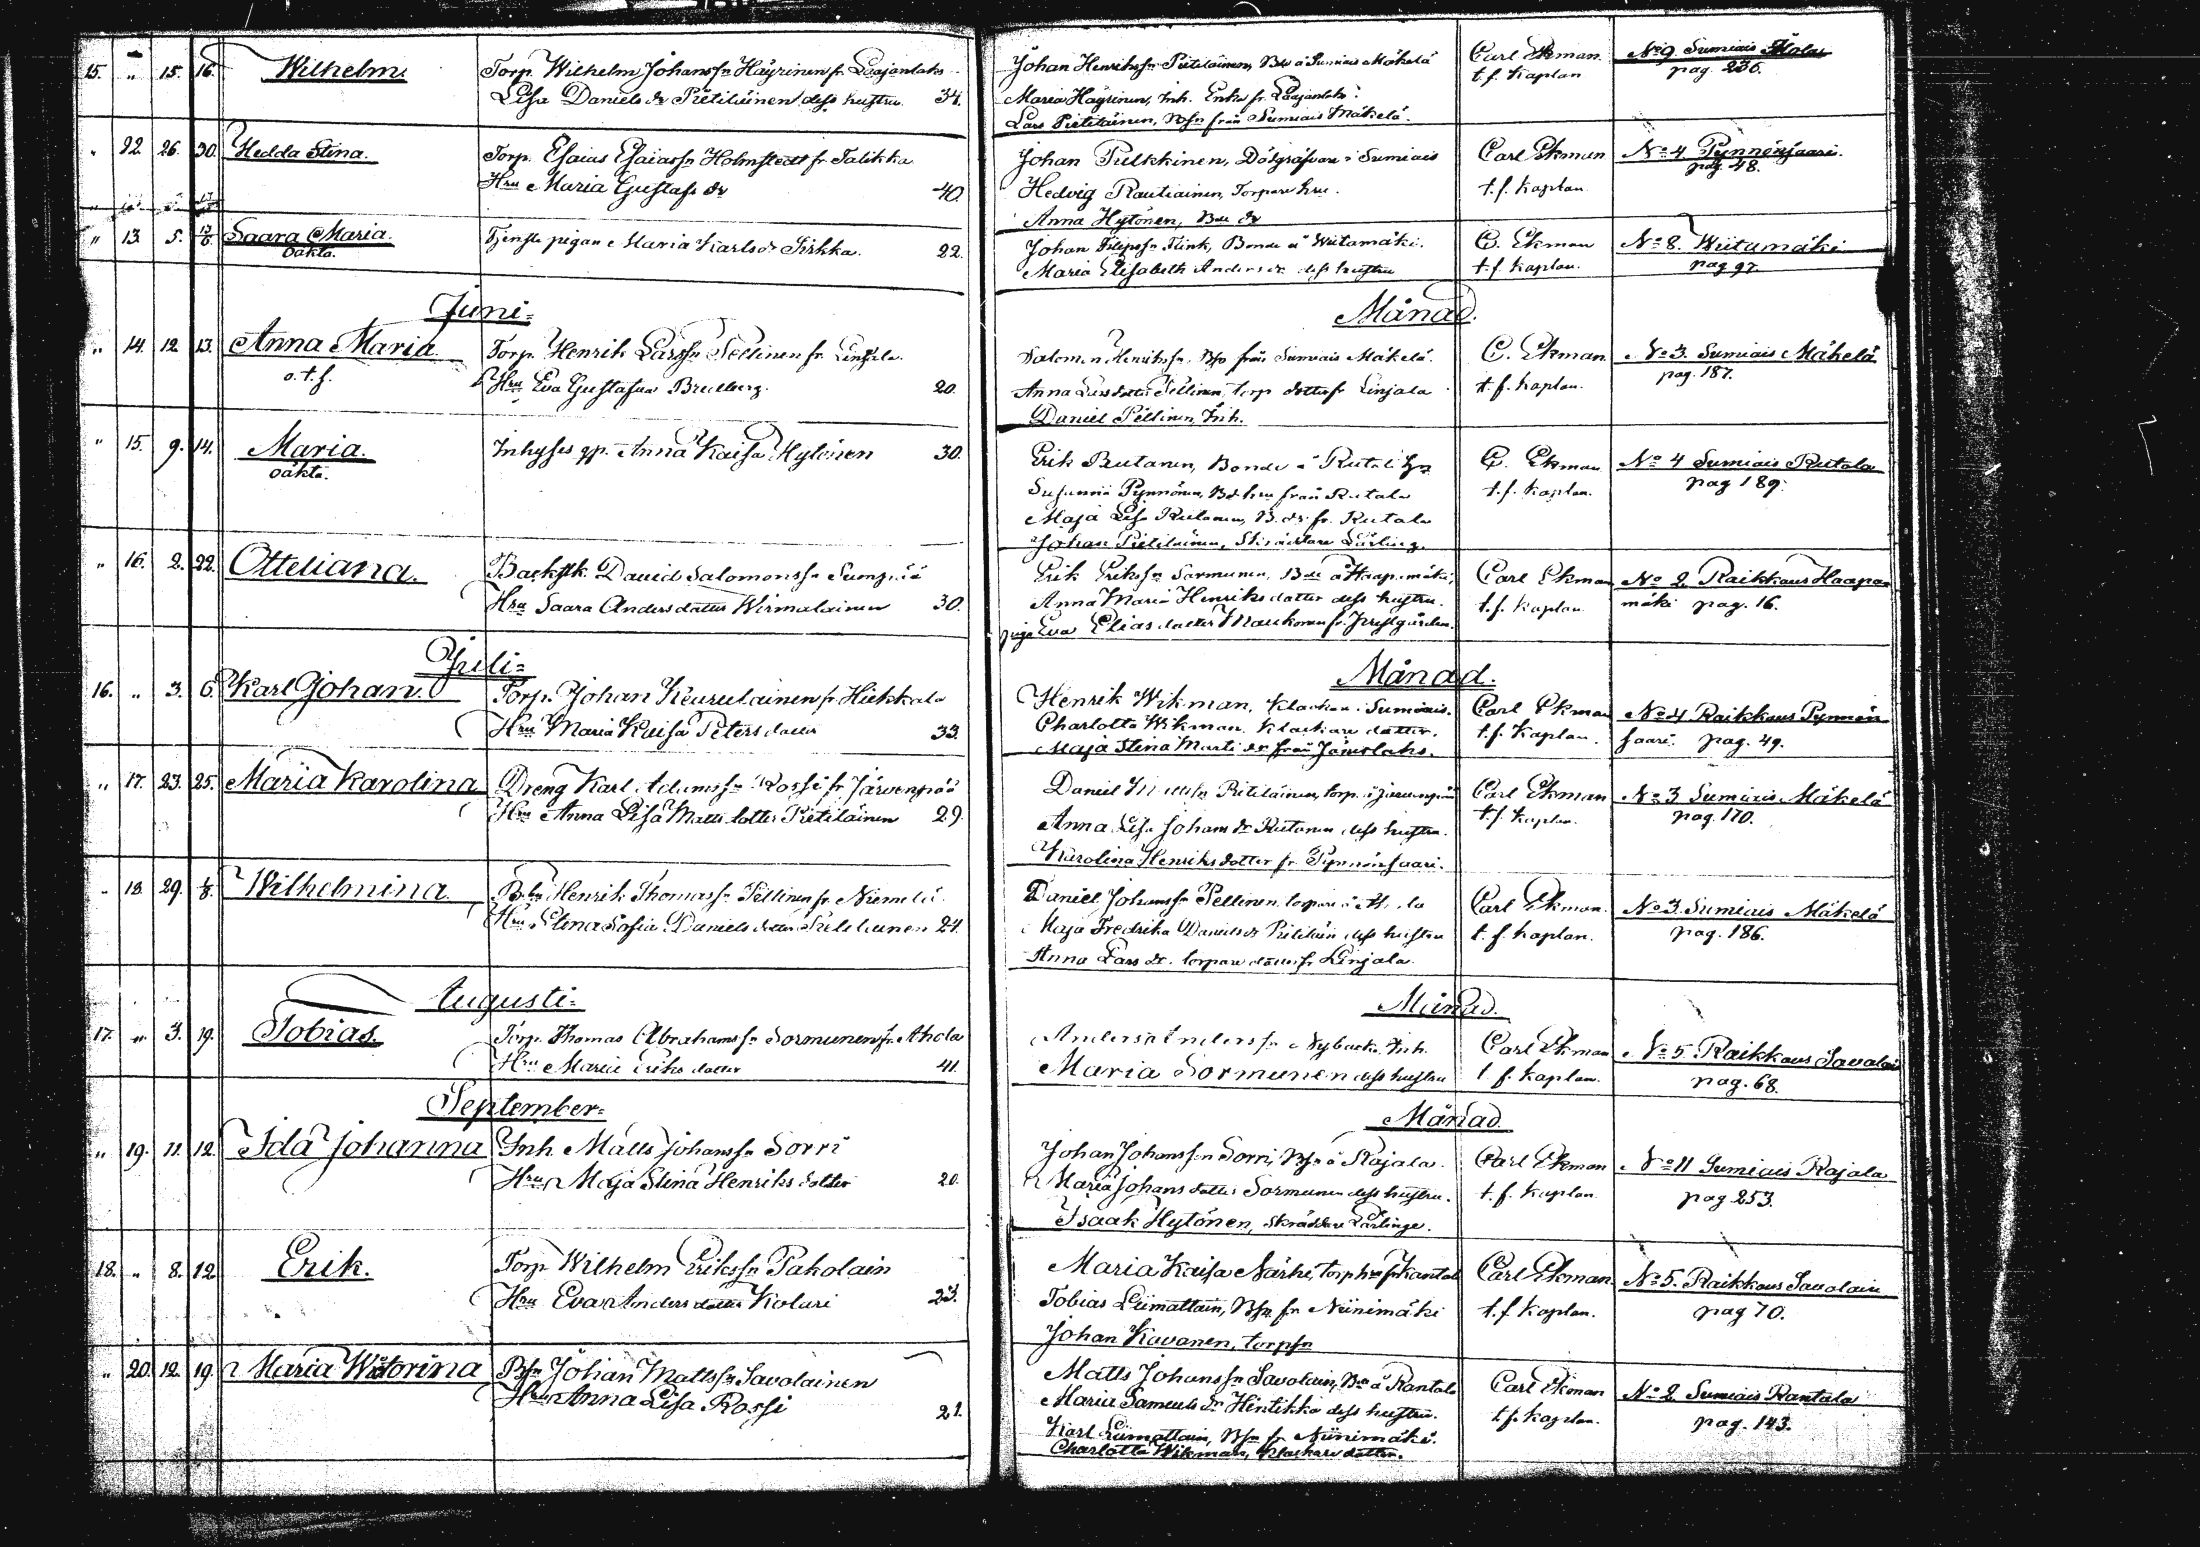 15. " 15. 16. Wilhelm Torp. Wilhelm Johanss:n Häyrinen fr. Laajanlaks
Lisa Daniels dr Pietiläinen dess hustru 34.
Johan Henrikss:n Pietiläinen, Bde å Sumiais Mäkelä
Maria Häyrinen, Inh. Enka fr. Laajanlaks.
Lars Pietiläinen, Bsn från Sumiais Mäkelä.
Carl Ekman
t.f. Kaplan
No 9 Sumiais
pag. 236.
" 22. 26. 30. Hedda Stina. Torp. Esaias Esaiass:n Holmstedt fr. Talikka
Hru Maria Gustafs dr 40.
Johan Pulkkinen, Dödgräfvare i Sumiais
Hedvig Rautiainen, Torpare hru.
Anna Hytönen, Bde dr
Carl Ekman
t.f. Kaplan.
No 4 Pynnönsaari.
pag. 48.
" 13. 5. 13/6 Saara Maria. Tjenste pigan Maria Karls dr Pirkka. 22.
oäkta.
Johan Filipss:n Flink, Bonde å Wiitamäki.
Maria Elisabeth Anders dr dess hustru
C. Ekman
t.f. Kaplan.
No 8. Wiitamäki
pag 97.
Juni= Månad.
" 14. 12. 13. Anna Maria Torp. Henrik Larss:n Pellinen fr. Linjala
o.t.f.
Hru Eva Gustafva Bredberg. 20.
Salomon Henrikss:n Bso från Sumiais Mäkelä.
Anna Lars dotter Pellinen, torp dotter fr Linjala
Daniel Pellinen, Inh.
C. Ekman
t.f. Kaplan.
No 3. Sumiais Mäkelä
pag. 187.
" 15. 9. 14. Maria. Inhyses qp. Anna Kaisa Hytönen 30.
oäkta.
Erik Rutanen, Bonde å Rutala
Susanna Pynnönen, Bd hru från Rutala
Maja Lisa Rutanen, B. dr. fr. Rutala
Johan Pietiläinen, Skräddare Lärling.
C. Ekman
t.f. Kaplan.
No 4 Sumiais Rutala
pag 189.
" 16. 2. 22. Otteliana. Backstk. David Salomonss:n
Hru Saara Anders dotter Wirmalainen 30.
Erik Erikss:n Sormunen, Bde å Haapamäki,
Anna Maria Henriks dotter dess hustru.
piga Eva Elias dotter Maukonen fr. Prestgården.
Carl Ekman
t.f. Kaplan
No 2 Raikkaus Haapa
mäki pag. 16.
Juli= Månad.
16. " 3. 6. Karl Johan. Torp. Johan Keurulainen fr Hiekkala
Hru Maria Kaisa Peters dotter 33.
Henrik Wikman, Klockare i Sumiais.
Charlotta Wikman, Klockare dotter.
Maja Stina Marti dr från
Carl Ekman
t.f. Kaplan.
No 4 Raikkaus Pynnön
saari. pag. 49.
" 17. 23. 25. Maria Karolina Dreng Karl Adamss:n Rossi fr Järvenpää
Hru Anna Lisa Matts dotter Pietiläinen 29.
Daniel Pietiläinen, torp. i Järvenpää
Anna Lisa Johans dr Rutanen dess hustru.
Karolina Henriks dotter fr. Pynnönsaari.
Carl Ekman
t.f. Kaplan.
No 3 Sumiais Mäkelä
pag. 170.
" 18. 29. 1/8. Wilhelmina Henrik Thomass:n Pellinen fr. Niemelä
Hru Stina Sofia Daniels dotter 24.
Daniel Johanss:n Pellinen, torpare
Maja Fredrika Daniels dr Pietiläin dess hustru
Anna Lars dr. torpare dotter fr Linjala.
Carl Ekman.
t.f. Kaplan.
No 3. Sumiais Mäkelä
pag. 186.
Augusti= Månad.
17. " 3. 19. Tobias. Torp. Thomas Abrahamss:n Sormunen fr. Ahola
Hru Maria Eriks dotter 41.
Anders Anderss:n Nyback, Inh.
Maria Sormunen dess hustru
Carl Ekman
t.f. Kaplan.
No 5. Raikkaus Savolai
pag. 68.
September= Månad
" 19. 11. 12. Ida Johanna Inh Matts Johanss:n Sorri
Hru Maja Stina Henriks dotter 20.
Johan Johanss:n Sorri, Bsn å Rajala.
Maria Johans dotter Sormunen dess hustru.
Isaak Hytönen, Skräddare Lärlinge.
Carl Ekman
t.f. Kaplan
No 11 Sumiais Rajala
pag 253.
18. " 8. 12. Erik. Torp Wilhelm Erikss:n Paholain
Hru Eva Anders dotter Kolari 23.
Maria Kaisa Närhi, torp hru fr Kantal
Tobias Liimattain, Bsn fr Niinimäki
Johan Kavanen, torpsn
Carl Ekman.
t.f. Kaplan.
No 5. Raikkaus Savolain
pag 70.
" 20. 12. 19. Maria Witorina Bsn Johan Mattss:n Savolainen
Hru Anna Lisa Rossi 21.
Matts Johanss:n Savolain, Bn å Rantala
Maria Samuels dr Hintikka dess hustru.
Karl Liimattain, Bsn fr Niinimäki.
Charlotta Wikman, Klockare dotter.
Carl Ekman
t.f. Kaplan.
No 2 Sumiais Rantala
pag. 143.